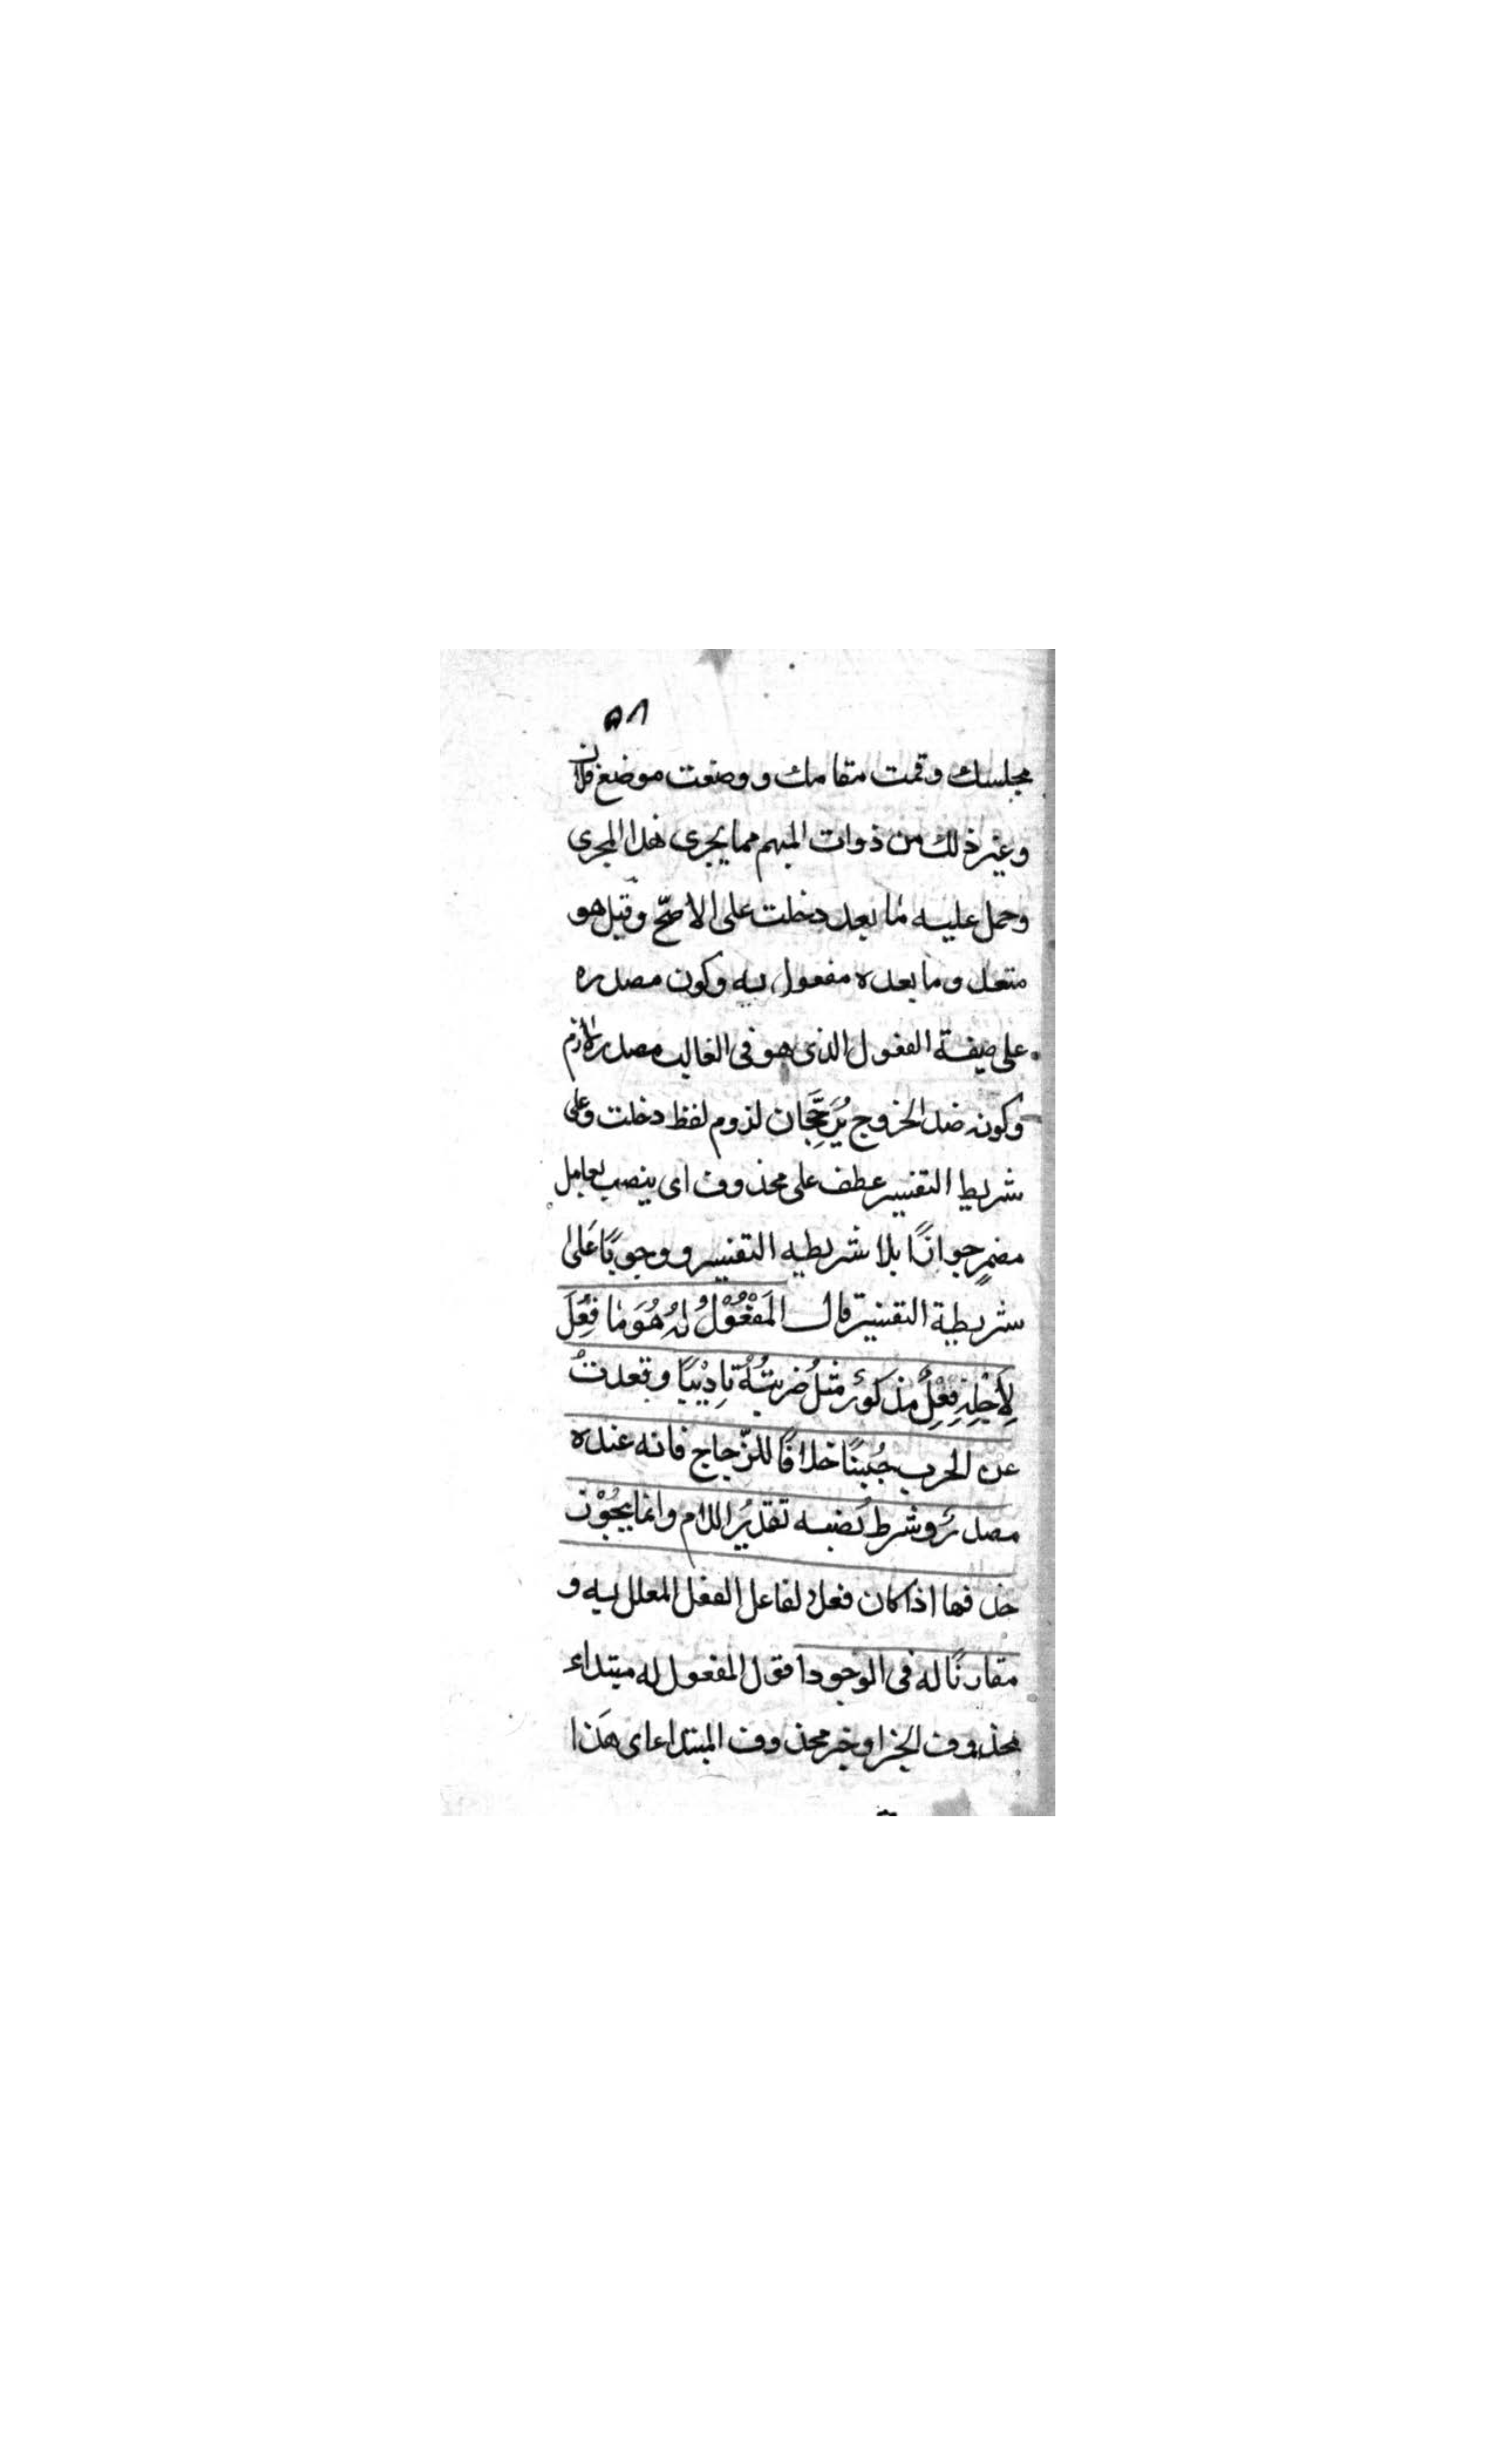 ٥٨
مجلسك وقمت مقامك ووضعت موضع فلان
وغير ذلك من ذوات المبهم مما يجرى هذا المجرى
وحمل عليه ما بعد دخلت على الاصحّ وقيل هو
متعد وما بعده مفعول به وكون مصدره
على صيغة الفعول الذى هو فى الغالب مصدر لازم
وكونه ضد الخروج يُرَجِّحَان لزوم لفظ دخلت وعلى
شريط التفسير عطف على محذوف اى ينصب بعامل
مضمرٍ جوازًا بلا شريطه التفسير ووجوبًا عَلىٰ
شريطة التفسير قال المَفْعُوْلُ لهُ هُوَ مٰا فُعِلَ
لِأَجْلِهِ فِعْلٌ مذكورٌ مثلُ ضربتُهُ تادِيْبًا وقعدتُ
عن الحرب جُبنًا خلافًا للزّجاج فانه عنده
مصدرٌ وشرط نَصبه تقديرُ اللام وانما يجُوْز
حذفها اذا كان فعلا لفاعل الفعل المعلل به و
مقارنًا له فى الوجود اقول المفعول له مبتداء
محذوف الخبر او خبر محذوف المبتداء اى هَذا